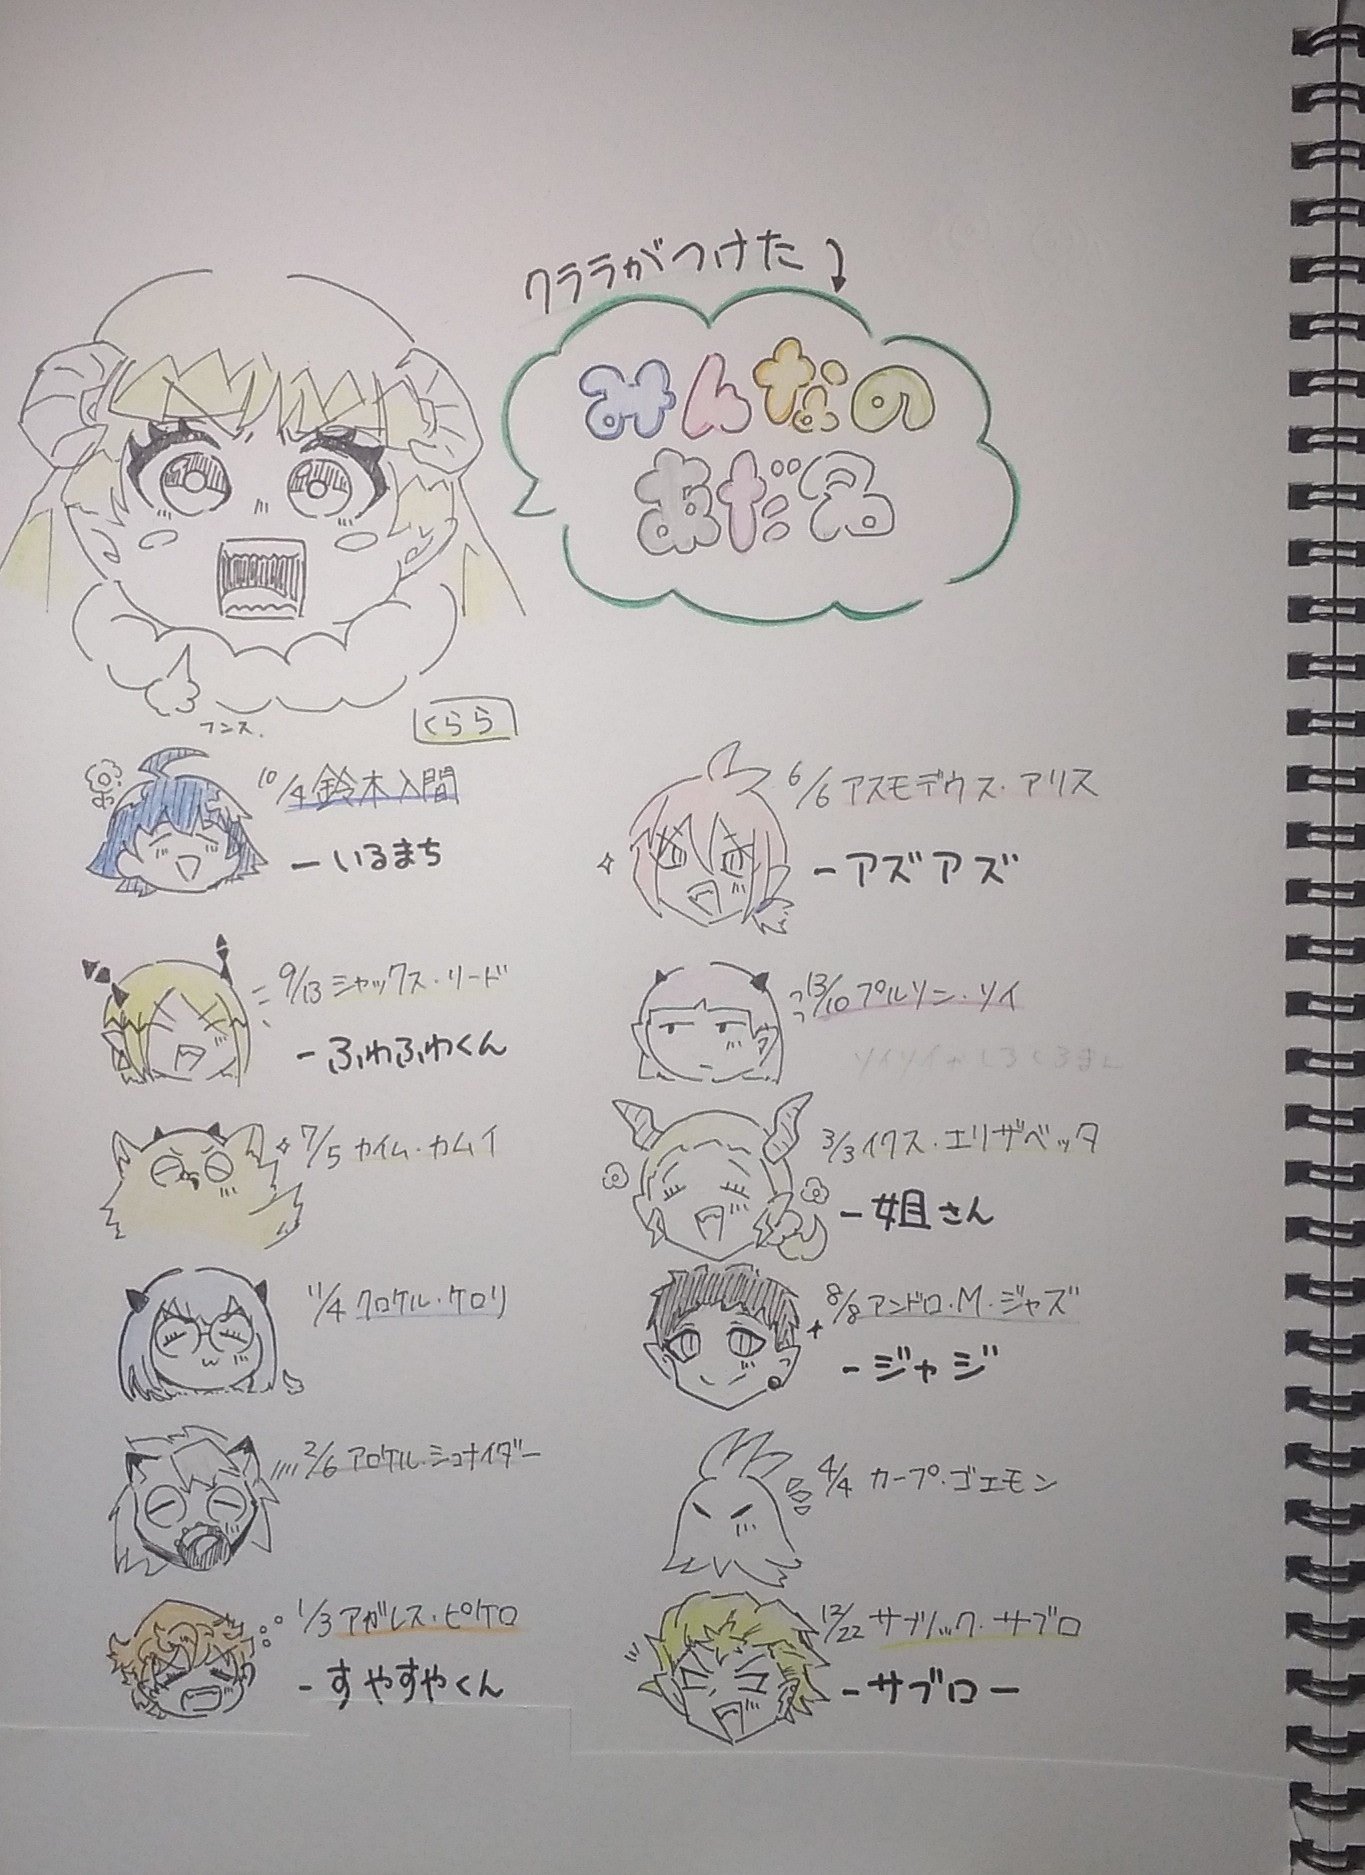 クララがつけた
みんなの
あだ名
フンス.
くらら
10/4 鈴木入間
ーいるまち
6/6 アスモデウス・アリス
ーアズアズ
9/13 シャックス・リード
ーふわふわくん
13/10 プルソン・ソイ
7/5 カイム・カムイ
3/3 イクス・エリザベッタ
ー姐さん
11/4 クロケル・ケロリ
8/8 アンドロ・M・ジャズ
ージャジ
2/6 アロケル・シュナイダー
4/4 カープ・ゴエモン
1/3 アガレス・ピケロ
ーすやすやくん
12/22 サブノック・サブロ
ーサブロー